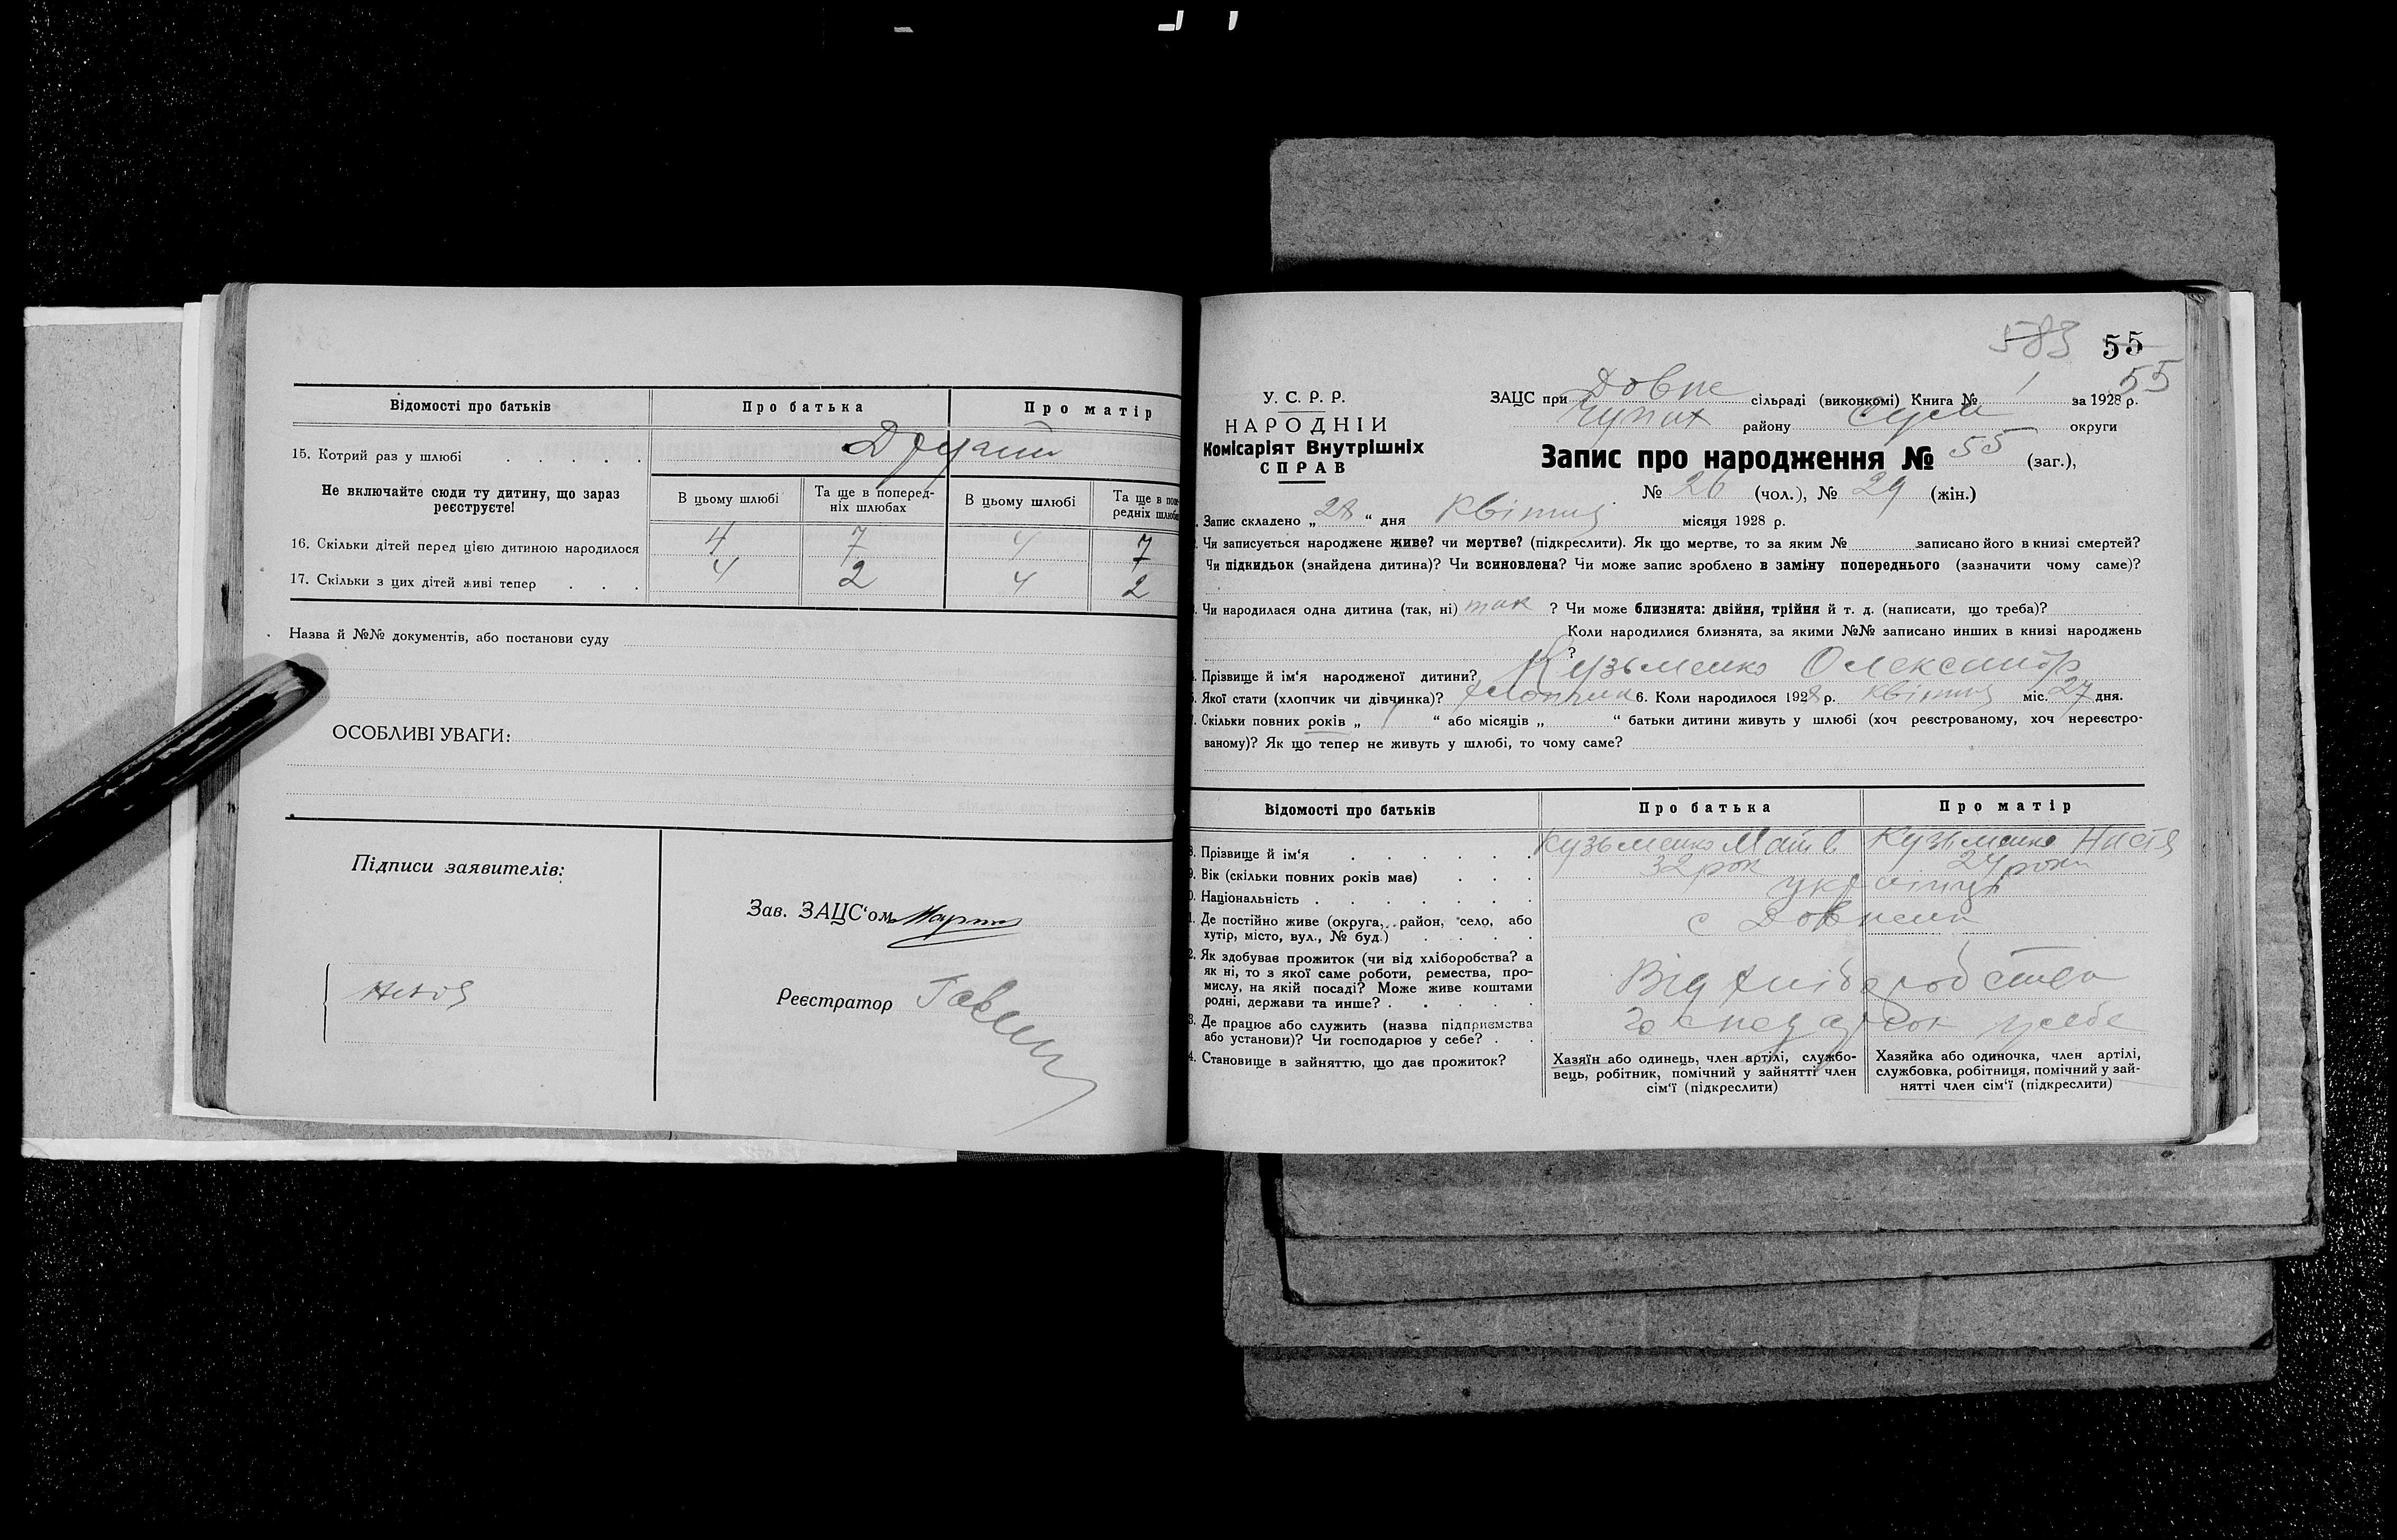 Відомості про батьків Про батька Про матір
15. Котрий раз у шлюбі . . . . . Другий
Не включайте сюди ту дитину, що зараз реєструєте!
В цьому шлюбі Та ще в поперед-
ніх шлюбах В цьому шлюбі Та ще в попе-
редніх шлюбах
16. Скільки дітей перед цією дитиною народилося 4 7 4 7
17. Скільки з цих дітей живі тепер . . . 4 2 4 2
Назва й №№ документів, або постанови суду
ОСОБЛИВІ УВАГИ:
Підписи заявителів:
Зав. ЗАЦС'ом
Реєстратор
583 55
55
У. С. Р. Р.
НАРОДНІЙ
Комісаріят Внутрішніх
СПРАВ
ЗАЦС при Довже сільраді (виконкомі) Книга № 1 за 1928 р.
Чупах району Суми округи
Запис про народження № 55 (заг.),
№ 26 (чол.), № 29 (жін.)
1. Запис складено „ 28 “ дня Квітня місяця 1928 р.
2. Чи записується народжене живе? чи мертве? (підкреслити). Як що мертве, то за яким № записано його в книзі смертей?
Чи підкидьок (знайдена дитина)? Чи всиновлена? Чи може запис зроблено в заміну попереднього (зазначити чому саме)?
3. Чи народилася одна дитина (так, ні) так ? Чи може близнята: двійня, трійня й т. д. (написати, що треба)?
Коли народилися близнята, за якими №№ записано инших в книзі народжень
?
4. Прізвище й ім'я народженої дитини? Кузьменко Олександр
5. Якої стати (хлопчик чи дівчинка)? хлопчик 6. Коли народилося 1928 р. квітня міс. 27 дня.
7. Скільки повних років „ “ або місяців „ “ батьки дитини живуть у шлюбі (хоч реєстрованому, хоч нереєстро-
ваному)? Як що тепер не живуть у шлюбі, то чому саме?
Відомості про батьків Про батька Про матір
8. Прізвище й ім'я . . . . . . Кузьменко Матв Кузьменко Настя
9. Вік (скільки повних років має) . . . 32 рок 24 роки
10. Національність . . . . . . . українці
11. Де постійно живе (округа, район, село, або
хутір, місто, вул., № буд.) . . . . с
12. Як здобуває прожиток (чи від хліборобства? а
як ні, то з якої саме роботи, ремества, про-
мислу, на якій посаді? Може живе коштами
родні, держави та инше? . . . . . Від хліборобства
13. Де працює або служить (назва підприємства
або установи)? Чи господарює у себе? . . у себе
14. Становище в зайняттю, що дає прожиток?
Хазяїн або одинець, член артілі, службо-
вець, робітник, помічний у зайнятті член
сім'ї (підкреслити)
Хазяйка або одиночка, член артілі,
службовка, робітниця, помічний у зай-
нятті член сім'ї (підкреслити)